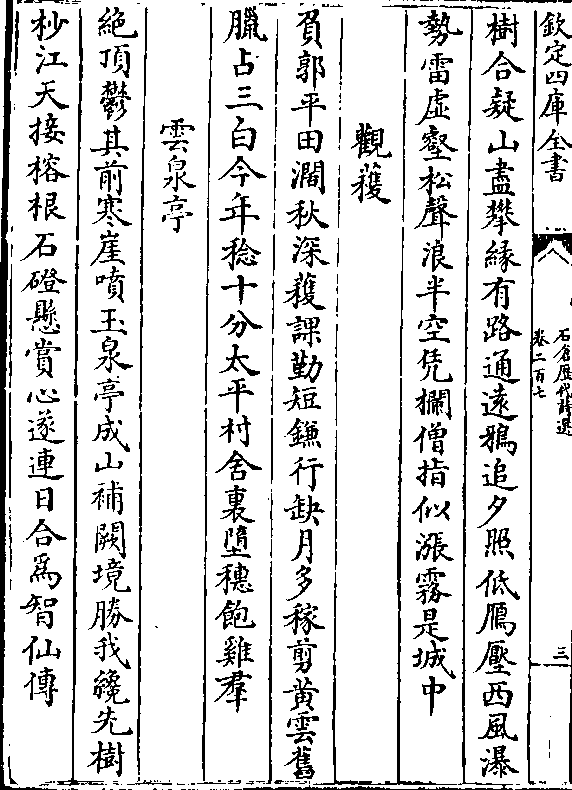 欽定四庫全書
石倉歷代詩選
卷二百七
三
樹合疑山盡攀緣有路通遠鴉追夕照低鴈壓西風瀑
勢雷虛壑松聲浪半空凭欄僧指似漲霧是城中
觀穫
負郭平田濶秋深穫課勤短鎌行缺月多稼剪黄雲舊
臘占三白今年稔十分太平村舍裏墮穗飽雞羣
雲泉亭
絶頂鬱其前寒崖噴玉泉亭成山補闕境勝我纔先樹
杪江天接榕根石磴懸賞心遂連日合爲智仙傳